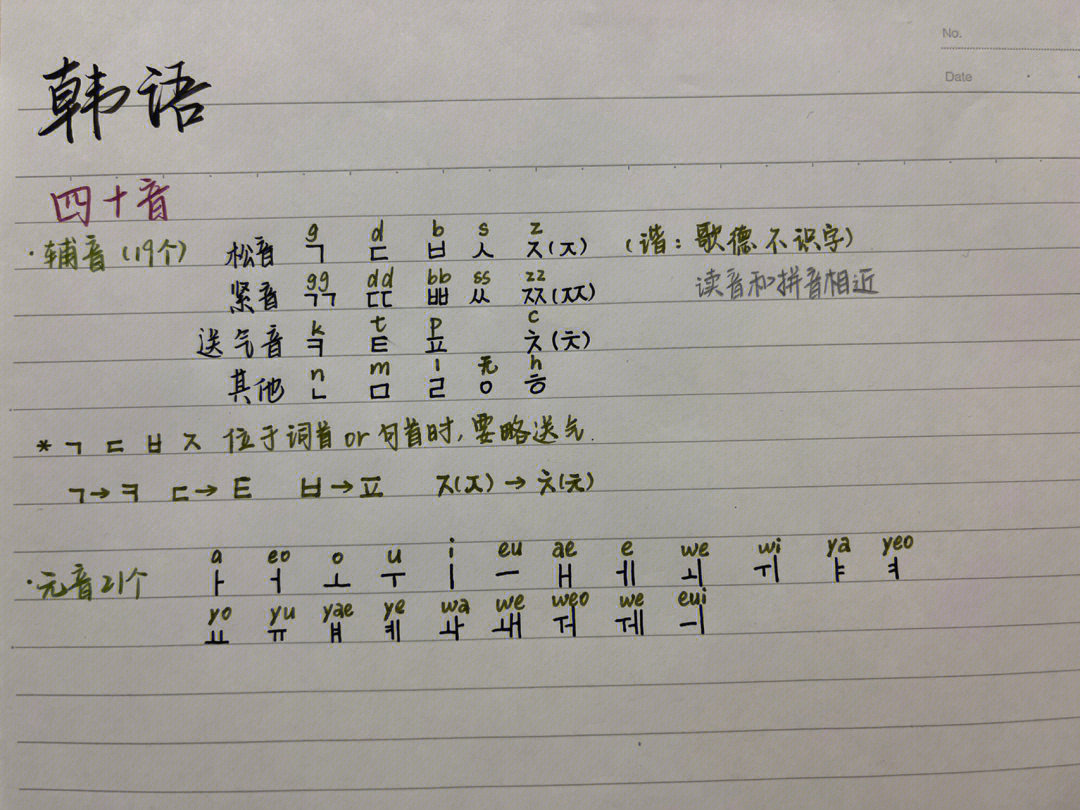 No.
Date
韩语
四十音
g d b s z
·辅音(19个) 松音 ㄱ ㄷ ㅂ ㅅ ㅈ(ㅈ) (谐:歌德不识字)
gg dd bb ss zz
紧音 ㄲ ㄸ ㅃ ㅆ ㅉ(ㅉ) 读音和拼音相近
k t p c
送气音 ㅋ ㅌ ㅍ ㅊ(ㅊ)
n m l 无 h
其他 ㄴ ㅁ ㄹ ㅇ ㅎ
* ㄱ ㄷ ㅂ ㅈ 位于词首or句首时,要略送气.
ㄱ→ㅋ ㄷ→ㅌ ㅂ→ㅍ ㅈ(ㅈ)→ㅊ(ㅊ)
a eo o u i eu ae e we wi ya yeo
·元音21个 ㅏ ㅓ ㅗ ㅜ ㅣ ㅡ ㅐ ㅔ ㅚ ㅟ ㅑ ㅕ
yo yu yae ye wa we weo we eui
ㅛ ㅠ ㅒ ㅖ ㅘ ㅙ ㅝ ㅞ ㅢ